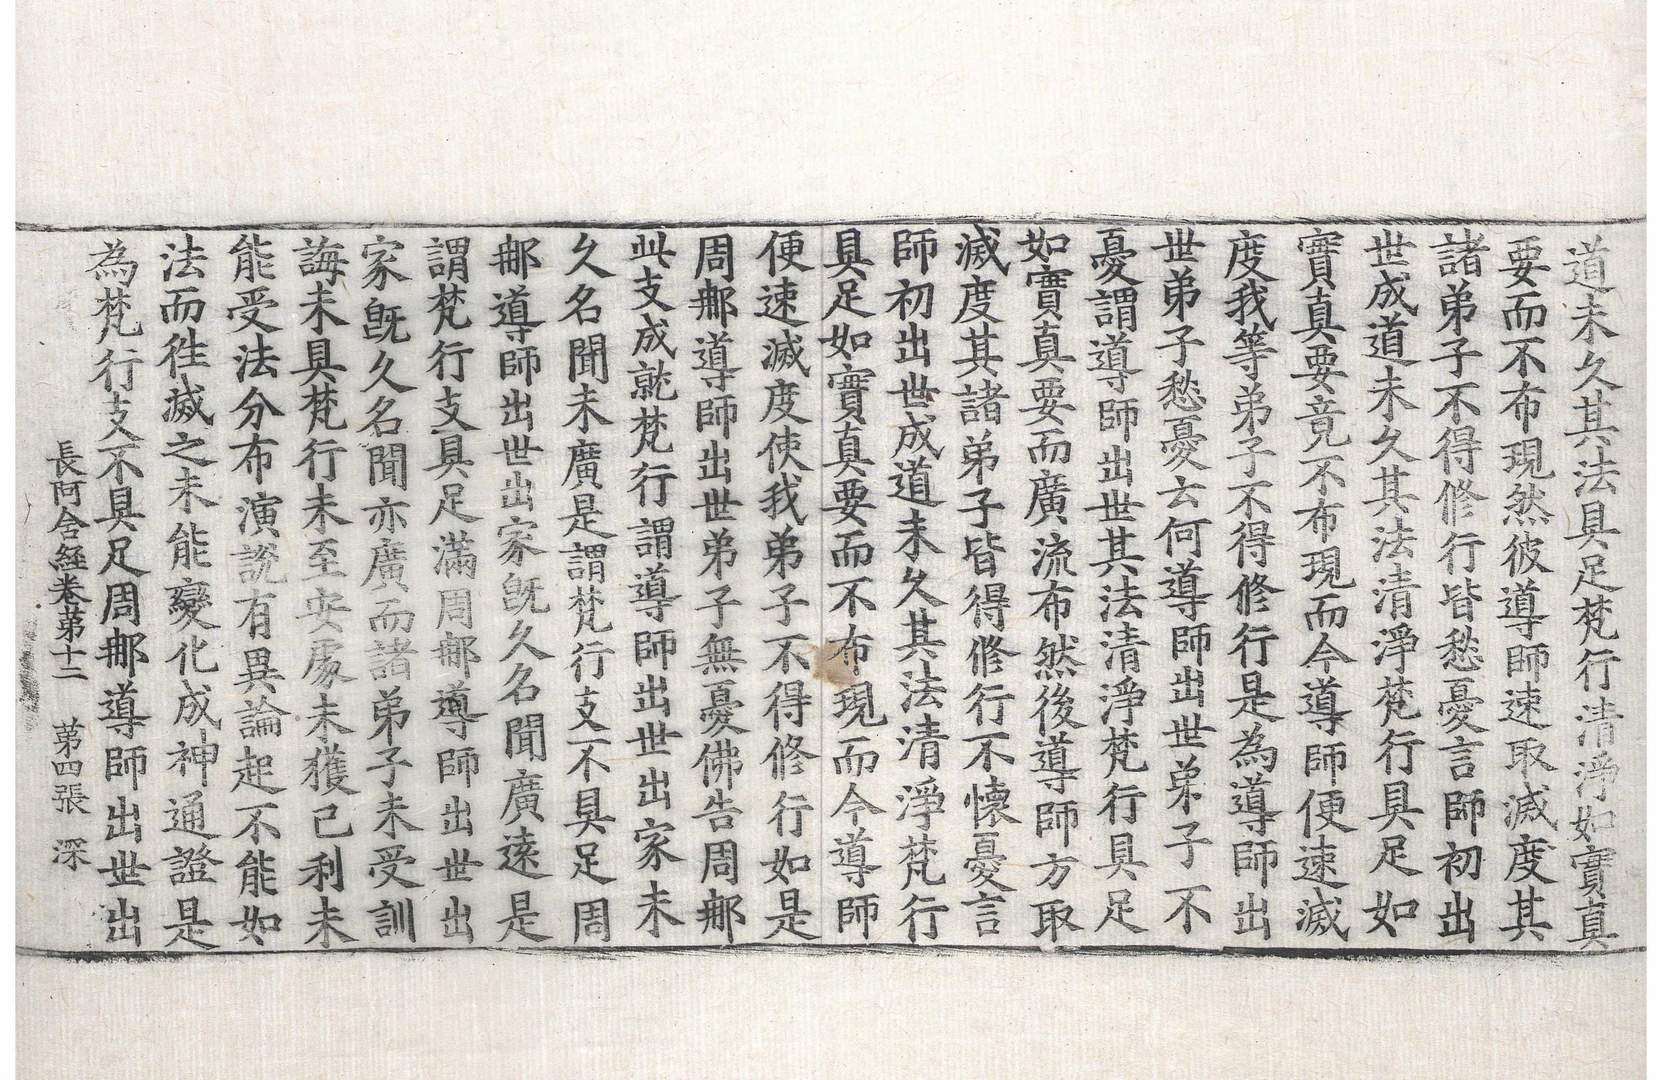 道未久其法具足梵行清淨如實真
要而不布現然彼導師速取滅度其
諸弟子不得修行皆愁憂言師初出
世成道未久其法清淨梵行具足如
實真要竟不布現而今導師便速滅
度我等弟子不得修行是為導師出
世弟子愁憂云何導師出世弟子不
憂謂導師出世其法清淨梵行具足
如實真要而廣流布然後導師方取
滅度其諸弟子皆得修行不懷憂言
師初出世成道未久其法清淨梵行
具足如實真要而不布現而今導師
便速滅度使我弟子不得修行如是
周那導師出世弟子無憂佛告周那
此支成就梵行謂導師出世出家未
久名聞未廣是謂梵行支不具足周
那導師出世出家既久名聞廣遠是
謂梵行支具足滿周那導師出世出
家既久名聞亦廣而諸弟子未受訓
誨未具梵行未至安處未獲己利未
能受法分布演說有異論起不能如
法而往滅之未能變化成神通證是
為梵行支不具足周那導師出世出
長阿含經卷第十二　第四張　深